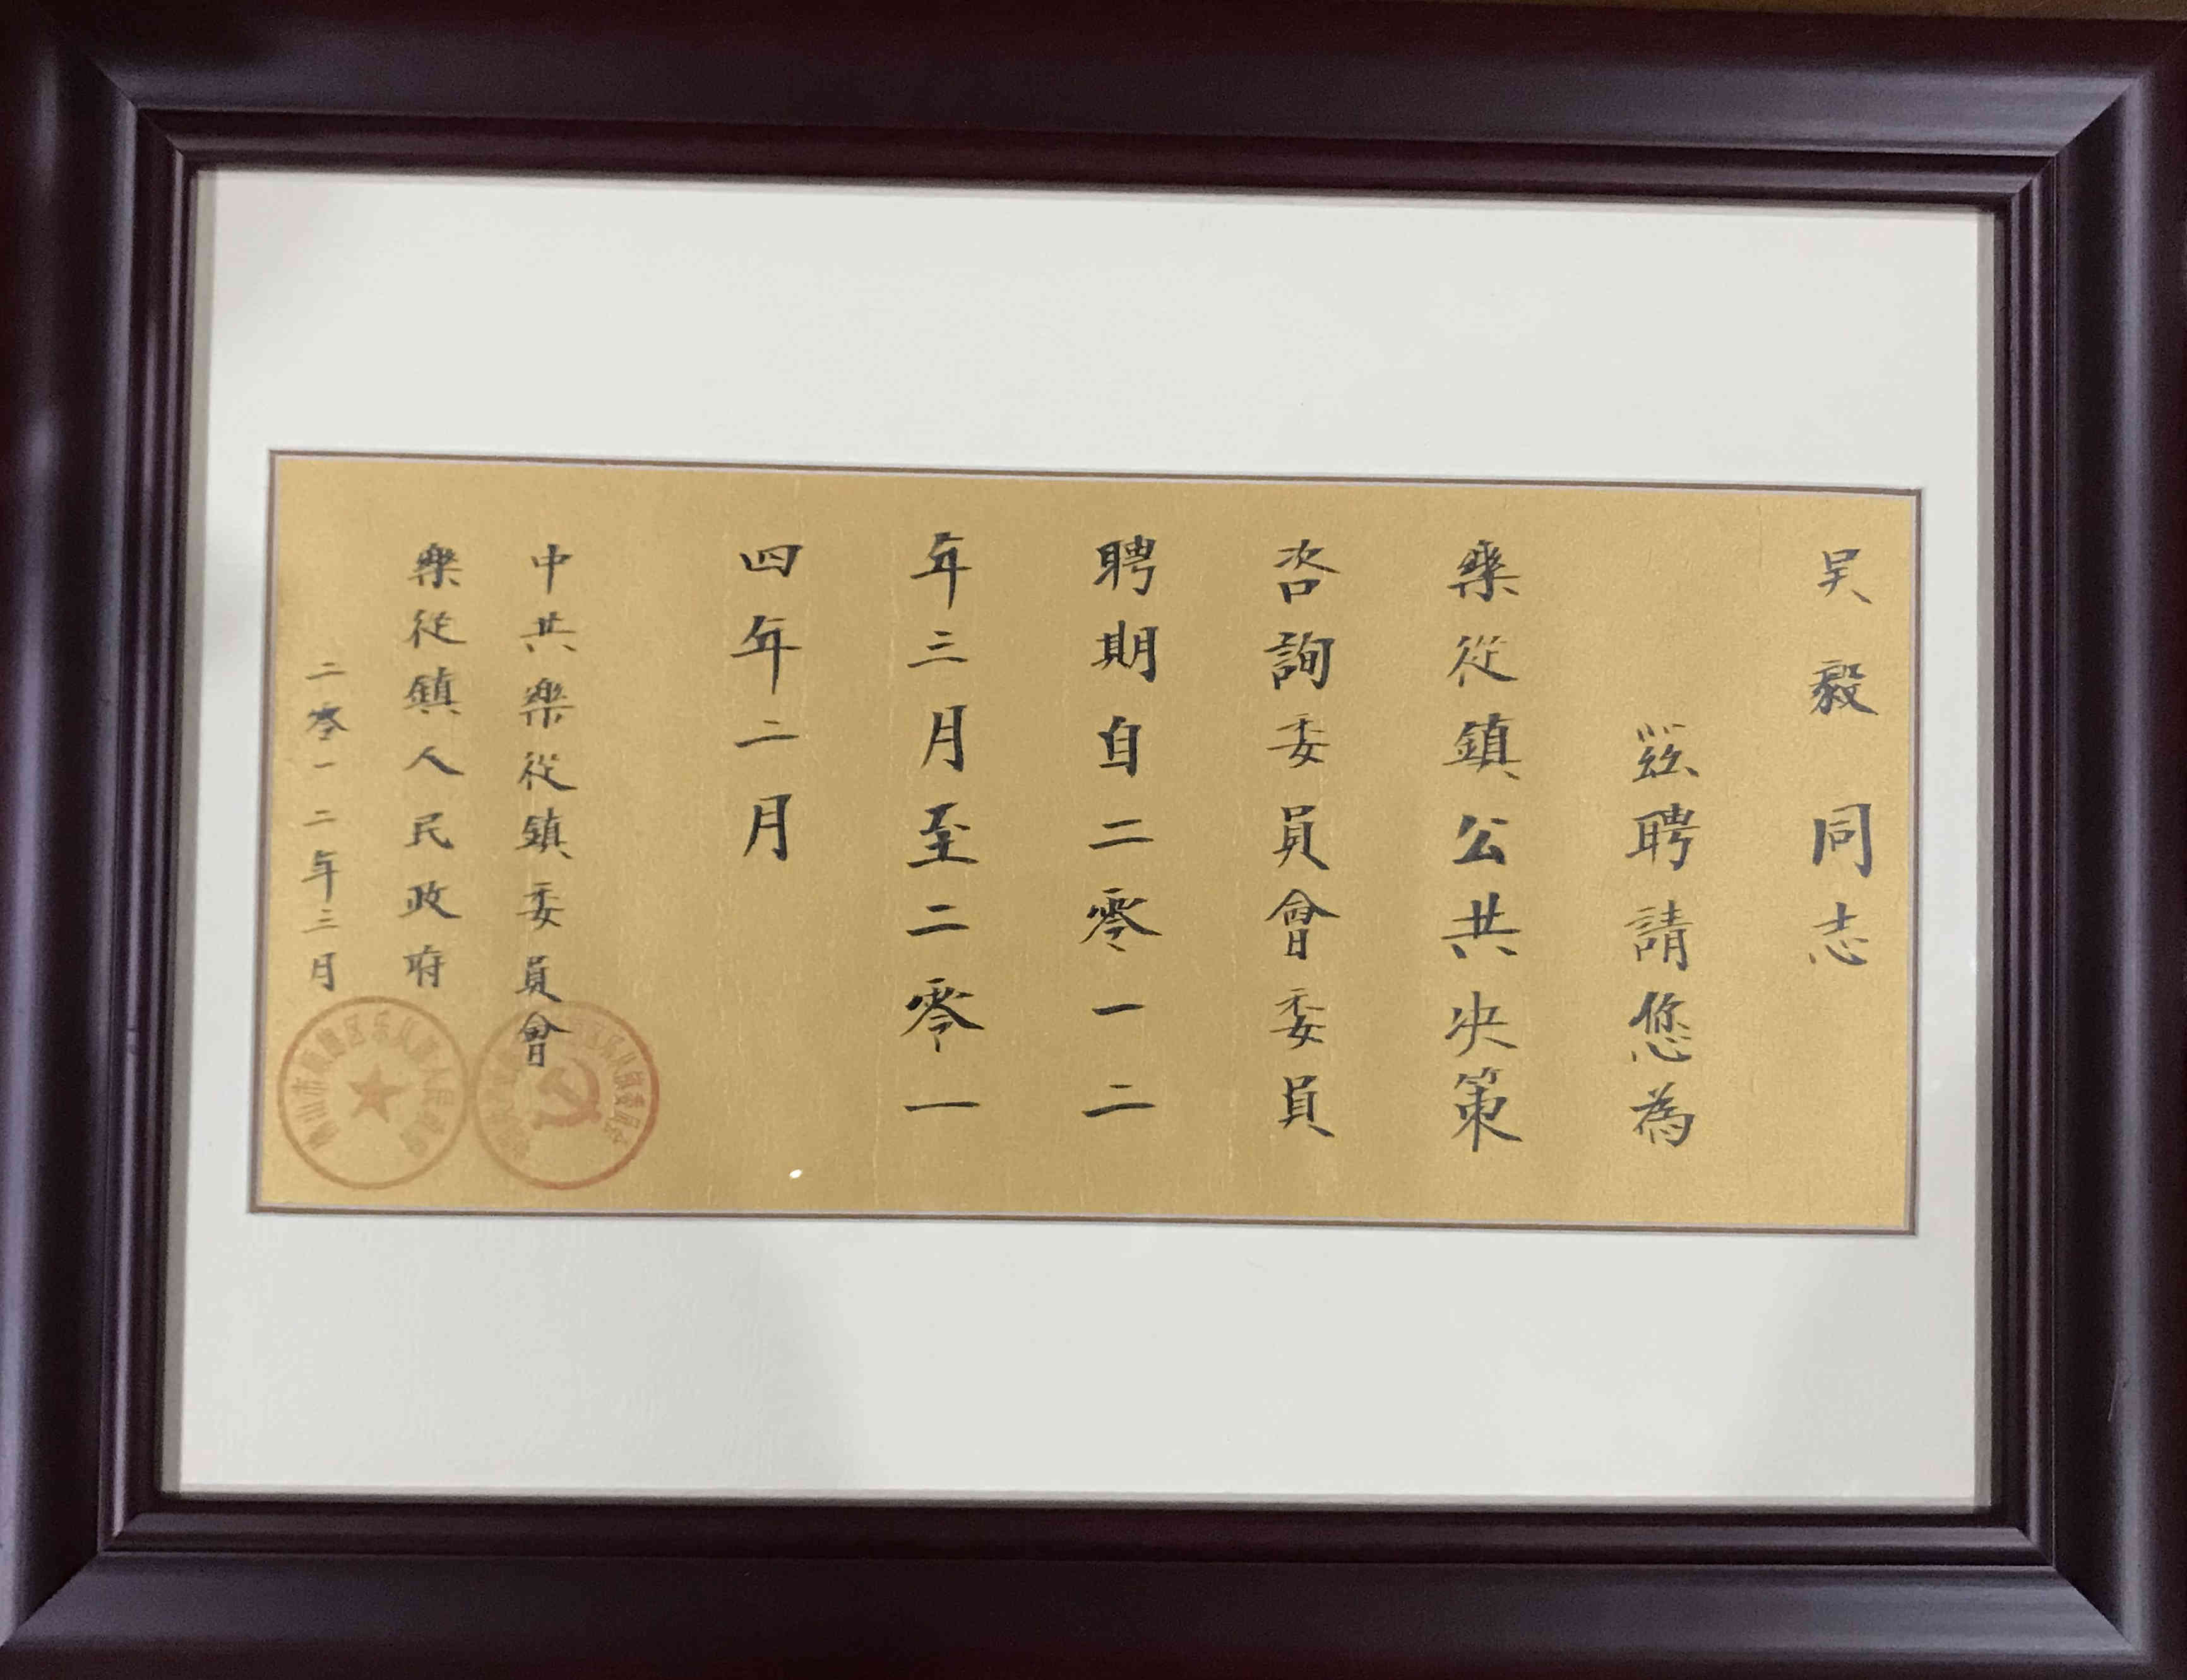 吴毅同志
兹聘請您為
樂從鎮公共决策
咨詢委員會委員
聘期自二零一二
年三月至二零一
四年二月
中共樂從鎮委員會
樂從鎮人民政府
二零一二年三月